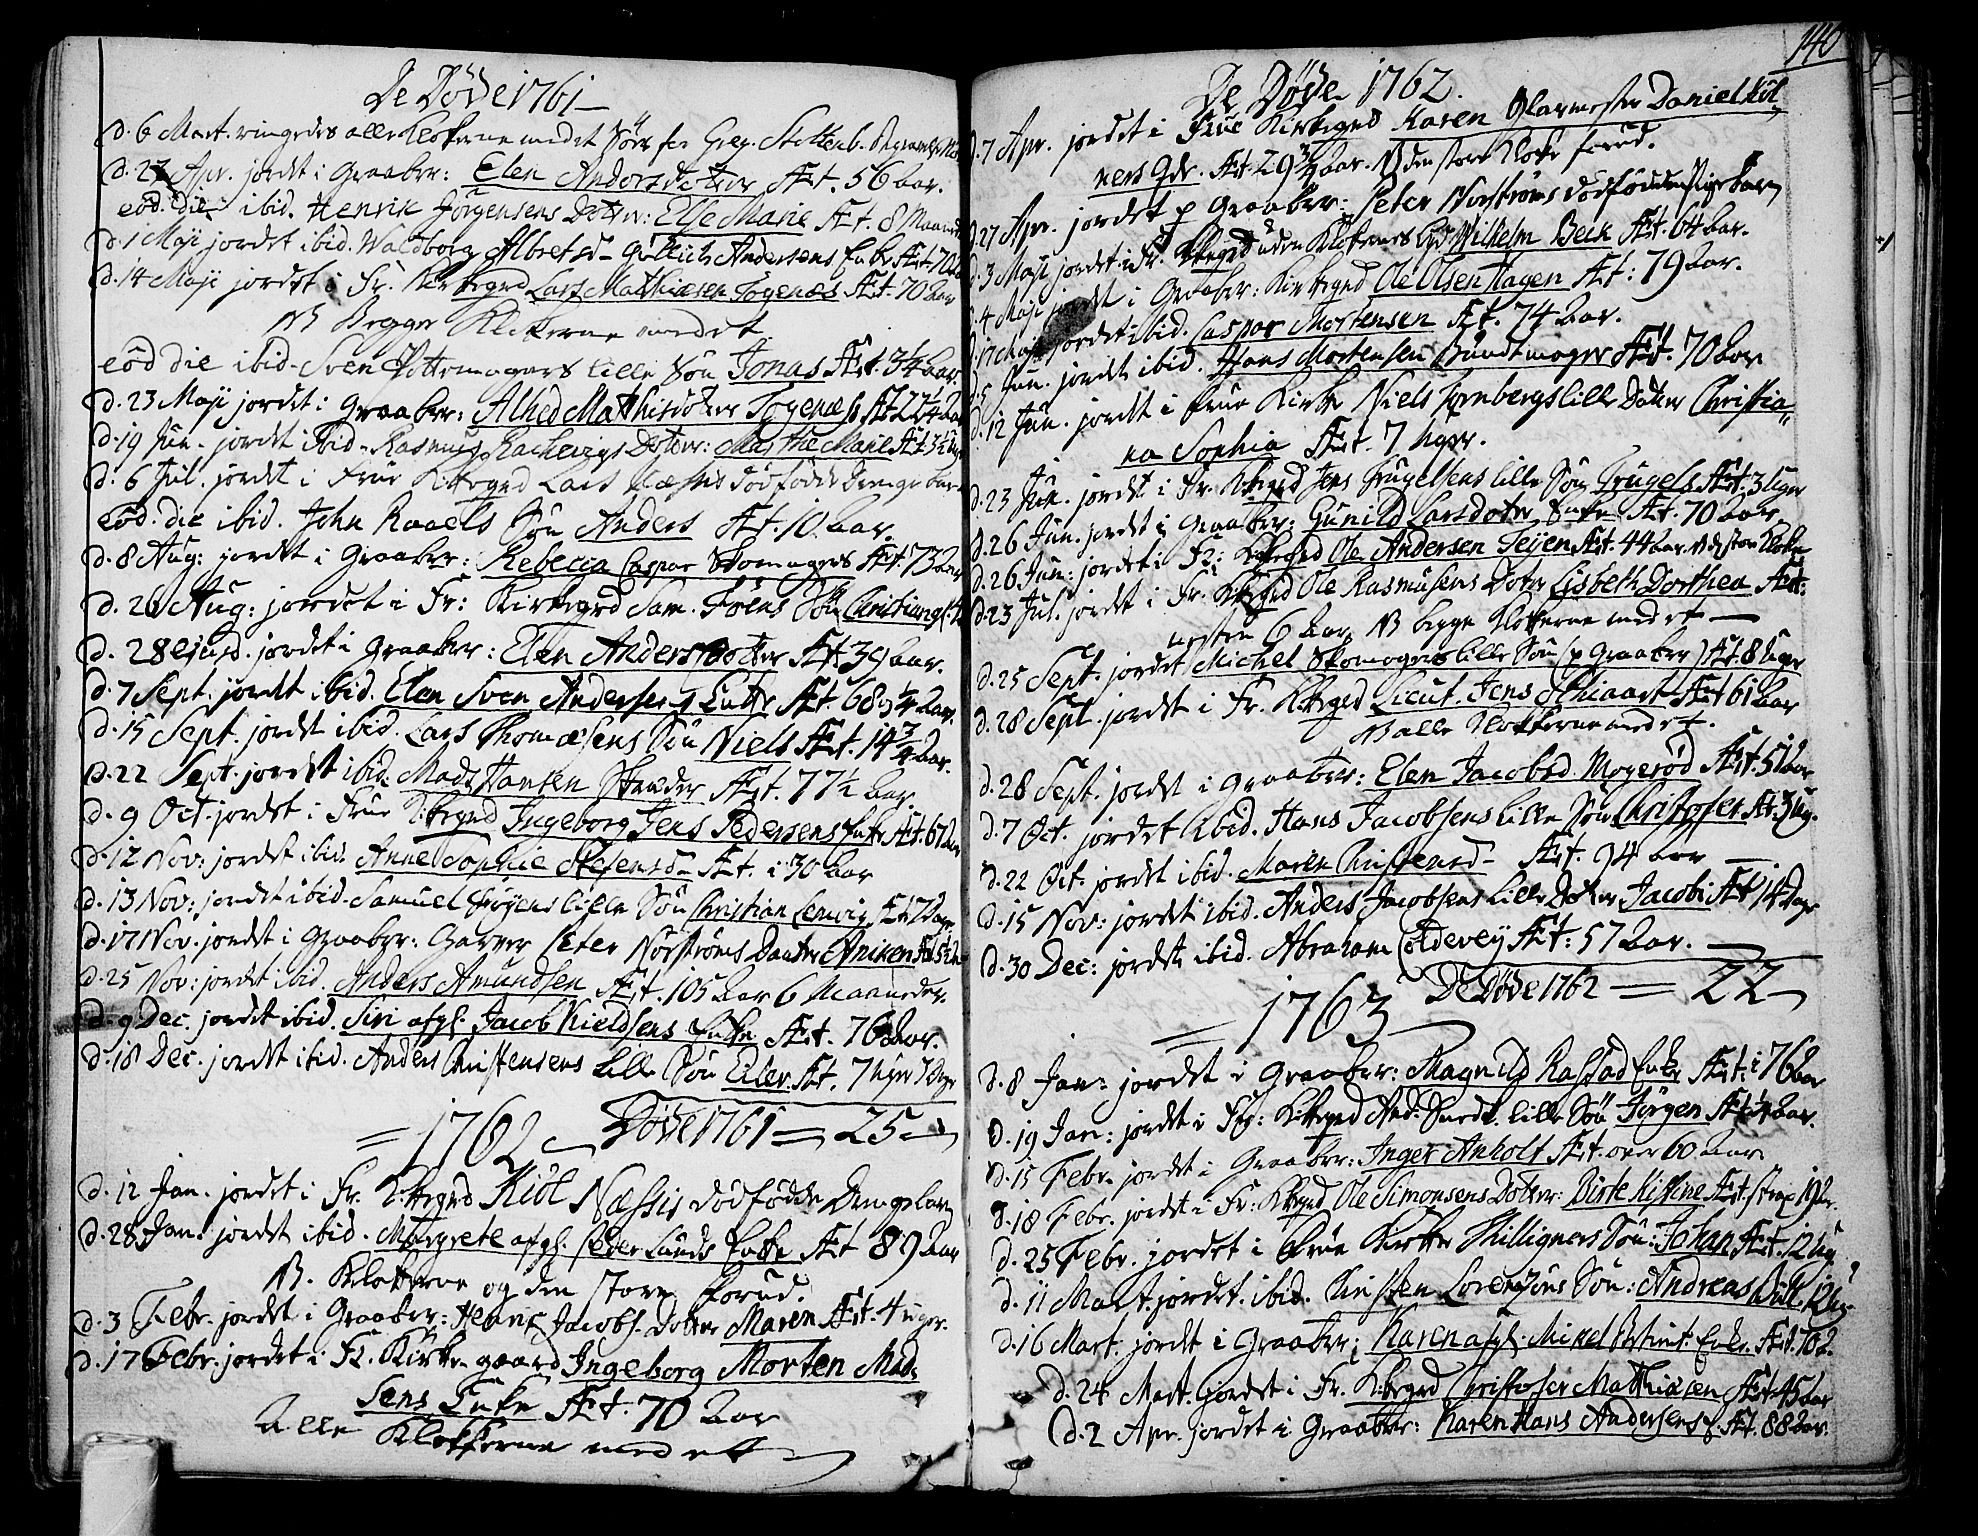 De Døde 1761
d. 6 Mart. ringedes alle Klokkerne medet
d. 27 Apr. jordet i Graabr: Elen Andersdotter Æt. 56 Aar.
eod. die ibid. Henrik Jörgensens Dotter: Else Marie Æt. 8 Maaned
d. 1 Maji jordet ibid. Waldborg Albretsd Gullich Andersens Enke Æt. 70
d. 14 Maji jordet i Fr. Kirkegrd Lars Mathiesen Togenæs Æt. 70 Aar
NB Begge Klokkerne medet
eod die ibid. Sven Pottemagers lille Sön Jonas Æt. 3/4 Aar
d. 23 Maji jordet i Graabr: Alhed Matthisdotter Togenæs Æt 22 1/4 Aar
d. 19 Jun. jordet ibid. Rasmus Dotter: Marthe Marie Æt
d. 6 Jul. jordet i Frue Kirkegrd Lars Næssis dödfödde Drengebar
eod. die ibid. John Roaels Sön Anders Æt. 10 Aar.
d. 8 Aug: jordet i Graabr: Rebecca Caspar Skomagers Æt 73 Aar
d. 26 Aug: jordet i Fr: Kirkegrd Sam. Sön Christian
d. 28 ejusd. jordet i Graabr: Elen Andersdotter Æt 39 Aar.
d. 7 Sept. jordet ibid. Elen Sven Andersens Enke Æt 68 3/4 Aar.
d. 15 Sept. jordet ibid. Lars Thomæsens Sön Niels Æt. 14 3/4 Aar.
d. 22 Sept. jordet ibid. Mads Hansen Skræder Æt. 77 1/2 Aar.
d. 9 Oct. jordet i Frue Kirkegrd Ingeborg Jens Pedersens Enke Æt. 67 Aar
d. 12 Nov: jordet ibid. Anne Sophie Stefensd Æt. i 30 Aar
d. 13 Nov: jordet ibid. Samuel lille Sön Christian Lenvig Æt 17 Dage
d. 17 Nov. jordet i Graabr: Garver Peter Nörströms Daatter Aniken Æt 5 1/2
d. 25 Nov: jordet ibid. Anders Amundsen Æt. 105 Aar 6 Maaneder.
d. 9 Dec. jordet ibid. Siri afgl. Jacob Nieldsens Enke Æt. 76 Aar.
d. 18 Dec. jordet ibid. Anders Christensens lille Sön Eiler Æt. 7 Uger 3 Dage
= 1762 Döde 1761 = 25
d. 12 Jan. jordet i Fr. Kirkegrd Kiöl Næssis dödfödde Drengebarn
d. 28 Jan. jordet ibid. Margrete afgl. Peder Lunds Enke Æt 89 Aar
NB. Klokkerne og den store forud.
d. 3 Febr. jordet i Graabr: Henric Jacobs. Dotter Maren Æt. 4 uger.
d. 17 Febr. jordet i Fr. Kirke gaard Ingeborg Morten Mad-
sens Enke Æt. 70 Aar
Alle Klokkerne medet
140
De Døde 1762.
d. 7 Apr. jordet i Frue Kirkegrd Karen Glarmester Daniel Köl-
ners Æt. 29 3/4 Aar. NB den store Klokke forud.
d. 27 Apr. jordet p Graabr: Peter Norströms dödföddes Barn
d. 3 Maji jordet i Fr. Kirkegrd uden Klokkernes Lyd Wilhelm Beck Æt. 64 Aar.
d. 4 Maji jordet i Graabr: Kirkegrd Ole Olsen Hagen Æt: 79 Aar.
d. 17 Maji jordet ibid. Caspar Mortensen Æt. 74 Aar.
d. 5 Jun. jordet ibid. Hans Mortensen Bundtmager Æt. 70 Aar
d. 12 Jun. jordet i Frue Kirke Niels lille Dotter Christia-
na Sophia Æt. 7 Uger.
d. 23 Jun. jordet i Fr. Kirkegrd Jens Trugelsens lille Sön Trugels Æt. 3 Uger
d. 26 Jun. jordet i Graabr: Gunild Larsdotter Enke Æt. 70 Aar
d. 26 Jun: jordet i Fr: Kirkegrd Ole Andersen Teyen Æt. 44 Aar. NB d. stor Klokke
d. 23 Jul. jordet i Fr. Kirkegrd Ole Rasmusens Doter Lisbeth Dorthea Æt:
næsten 6 Aar NB begge Klokkerne medet
d. 25 Sept. jordet Michel Skomagers lille Sön (p Graabr) Æt. 8 Uger
d. 28 Sept. jordet i Fr. Kirkegrd Lieut. Jens Schiaart Æt 61 Aar
NB alle Klokkerne medet.
d. 28 Sept. jordet i Graabr: Elen Jacobsd Mogeröd Æt. 51 Aar
d. 7 Oct. jordet ibid. Hans Jacobsens lille Sön Christofer Æt. 3 Ug.
d. 22 Oct. jordet ibid. Maren Christensd Æt. 94 Aar
d. 15 Nov: jordet ibid. Anders Jacobsens lille Doter Jacobi Æt 14 Dage
d. 30 Dec: jordet ibid. Abraham Coldevey Æt: 57 Aar.
De Døde 1762 = 22
= 1763
d. 8 Jan: jordet i Graabr: Ragnild Raastad Enke Æt: i 76 Aar
d. 19 Jan: jordet i Fr: Kirkegrd And. lille Sön Jörgen Æt 1/4 Aar.
d. 15 Febr. jordet i Graabr: Inger Anholt Æt. over 60 Aar
d. 18 Febr. jordet i Fr: Kirkegrd Ole Simonsens Dotter: Birte Kistine Æt. strax 19
d. 25 Febr. jordet i Frue Kirke Killigners Sön: Johan Æt. 12 Ug
d. 11 Mart. jordet ibid. Kirsten Lorenzöns Sön: Andreas
d. 16 Mart. jordet i Graabr: Karen afgl. Mikel Enke. Æt. 70
d. 24 Mart. jordet i Fr. Kirkegrd Christofer Matthiesen Æt 45 Aar
d. 2 Apr. jordet i Graabr: Karen Hans Andersens Æt. 88 Aar.